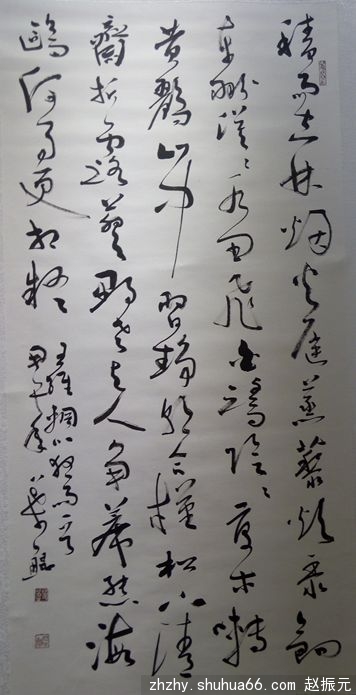 積雨空林烟火遲蒸藜炊黍餉
東菑漠々水田飛白鷺陰々夏木囀
黃鸝山中習靜觀朝槿松下清
齋折露葵野老與人爭席罷海
鷗何事更相疑
王維輞川積雨
甲午年
zhzhy.shuhua66.com 赵振元